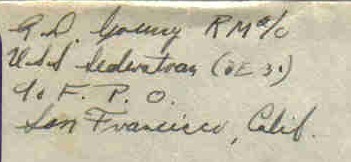 G. D. Goeny RM 3/c
U.S.S. Sederstrom (DE 31)
c/o F. P. O.
San Francisco, Calif.